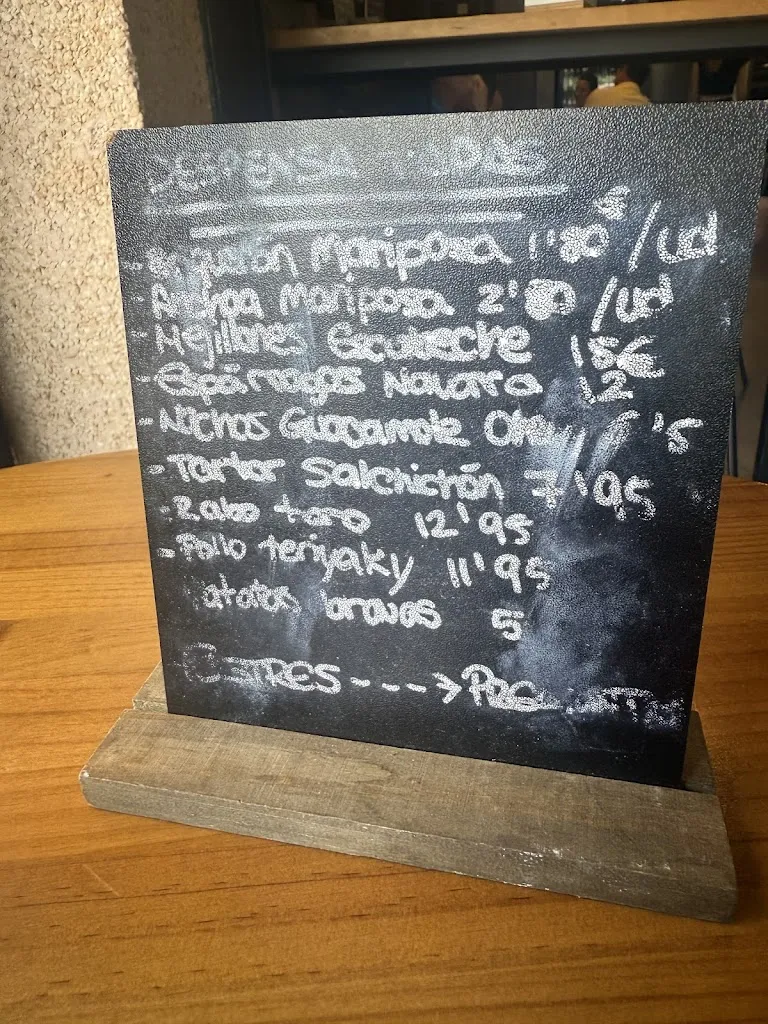 DESPENSA
- Mariposa 1'80 /Ud
- Anchoa Mariposa 2'80 /Ud
- Mejillones Escabeche 15€
- Espárragos Navarra 12
- Nachos Guacamole 5'5
- Tartar Salchichón 7'95
- Rabo toro 12'95
- Pollo teriyaky 11'95
Patatas bravas 5
POSTRES ----> PREGUNTAR